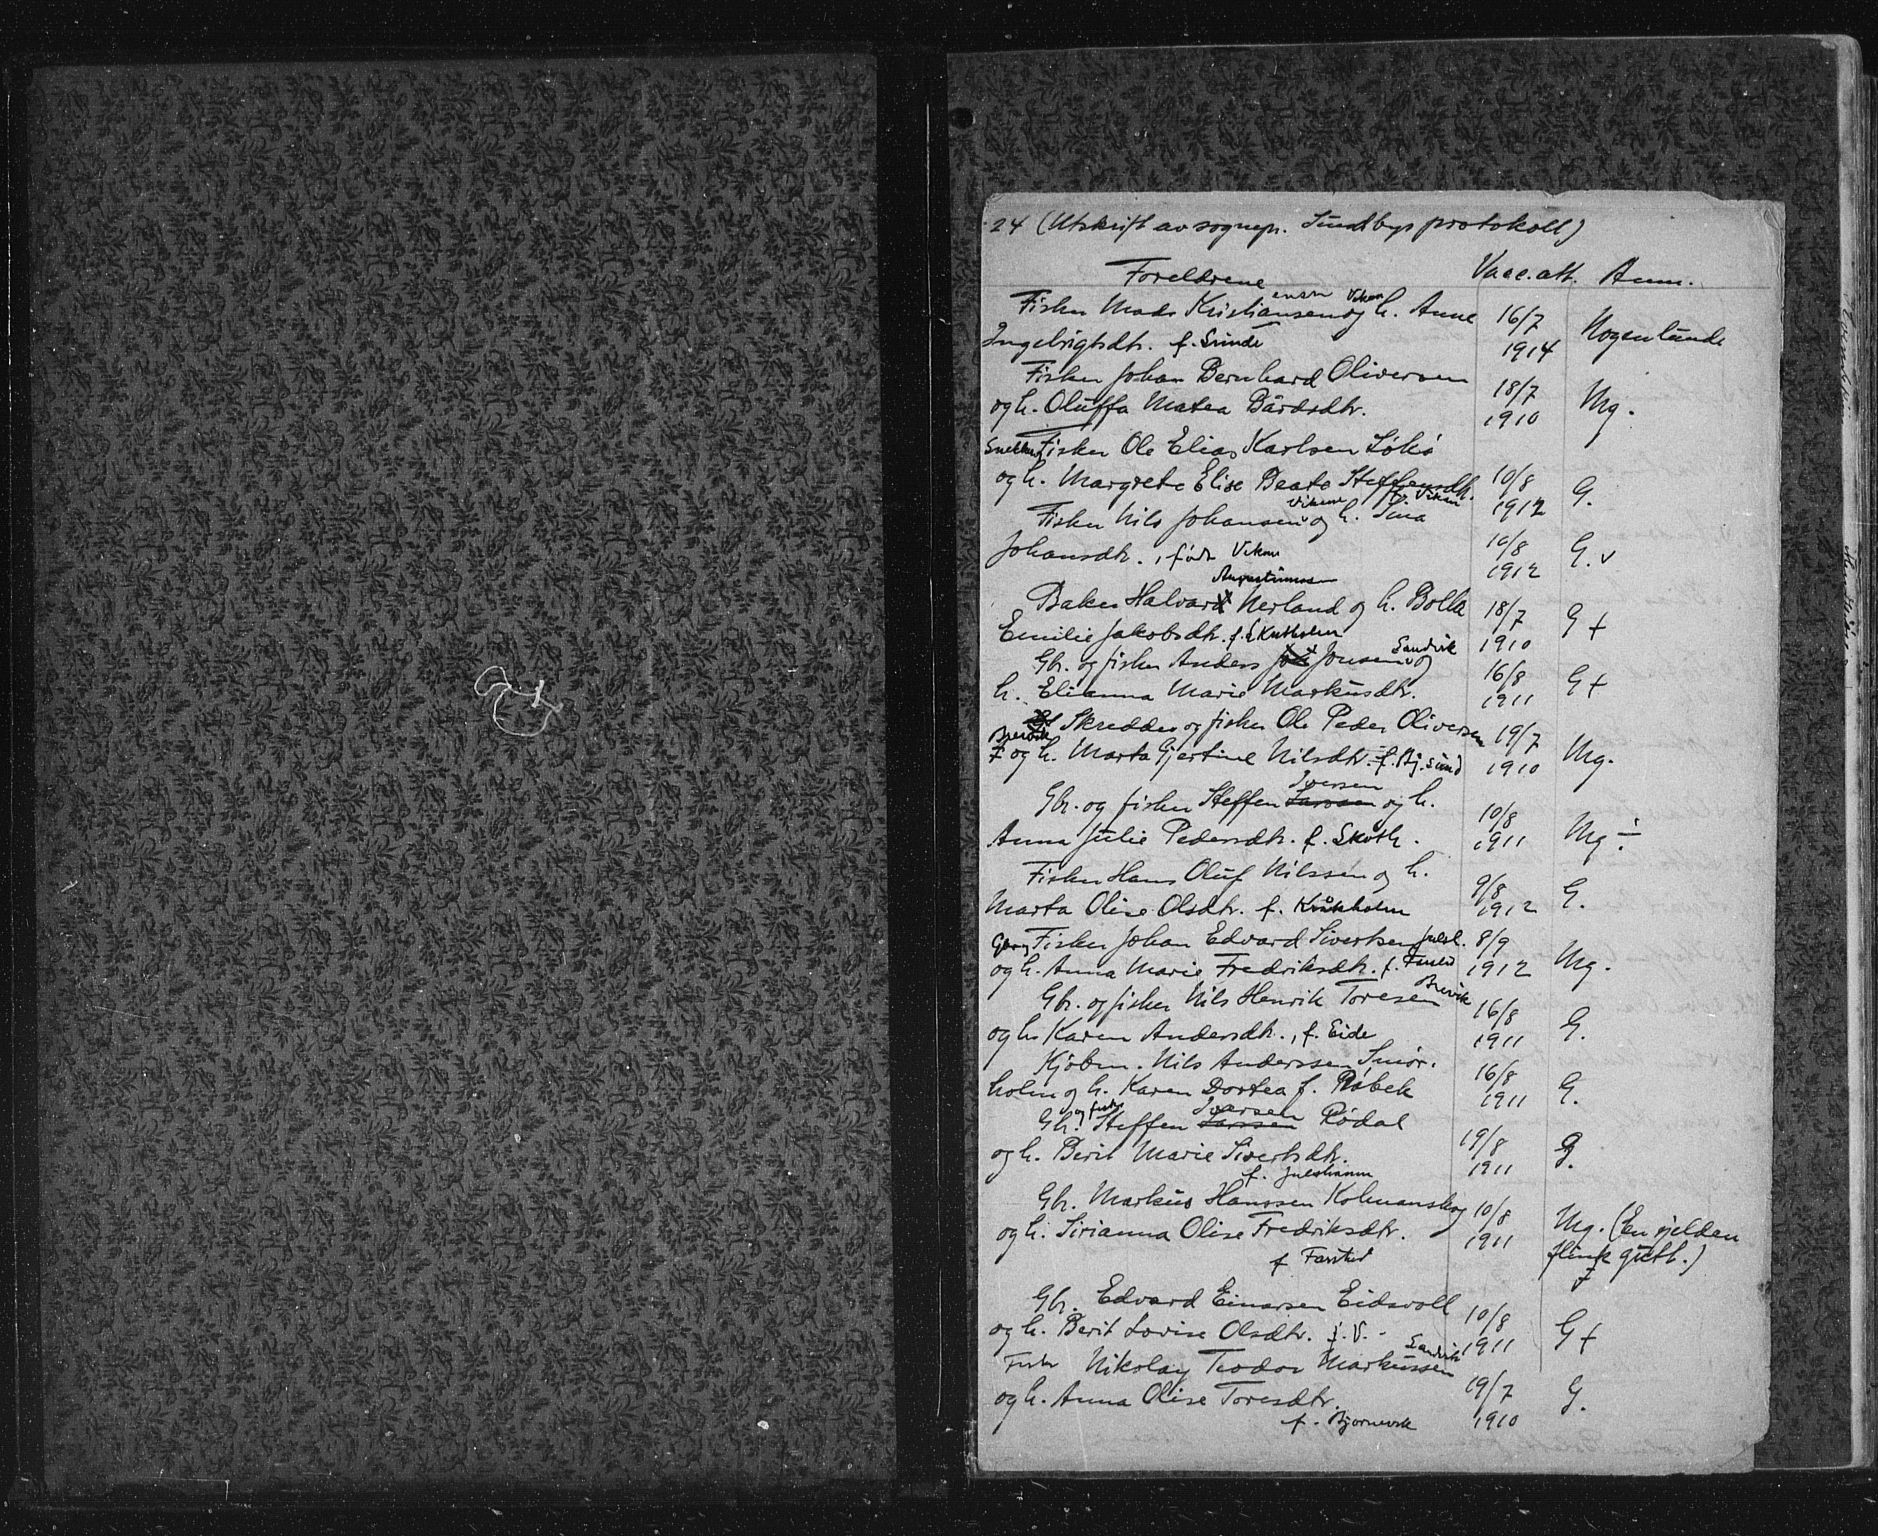 24 (Utskrift av sognepr. Sundbys protokoll)
Foreldrene Vacc.att. Anm.
Fisker Mads Kristiansen og h. Anne 16/7 Nogenlunde
Ingebrigtsdtr. f. Sunde 1914
Fisker Johan Bernhard Oliversen 18/7
og h. Oluffa Matea Bårdsdtr. 1910 Mg.
Snekker Fisker Ole Elias Karlsen
og h. Margrete Elise Beate Steffensdtr. 10/8 G.
Fisker Nils Johansen Viken og h. 1912
Johansdtr., født Viken 10/8 1912 G. v
Augustinussen
Baker Halvard Nerland og h. Bolla 18/7
Emilie Jakobsdtr. f. Skutholm 1910 G +
Gbr. og fisker Anders Jonsen Sandvik og 16/8
h. Elianna Marie Markusdtr. 1911 G +
Skredder og fisker Ole Peder Oliversen 19/7
og h. Marta Gjertine Nilsdtr. f. Bj.sund 1910 Mg.
Iversen
Gbr. og fisker Steffen Larssen og h. 10/8
Anna Julie Pedersdtr. f. 1911 Mg ÷
Fisker Hans Oluf Nilssen og h. 9/8
Marta Oline Olsdtr. f. Kråkholm 1912 G.
Fisker Johan Edvard Sivertsen Julsl. 8/9
og h. Anna Marie Fredriksdtr. f. 1912 Mg.
Gbr. og fisker Nils Henrik Toresen Brevik 16/8
og h. Karen Andersdtr., f. Eide 1911 G.
Kjøbm. Nils Anderssen Smør- 16/8
holm og h. Karen Dortea f. Røbek 1911 G.
og fisker Iversen
Gbr. Steffen Larssen Rødal 19/8
og h. Berit Marie Sivertsdtr. 1911 G.
f. Julshamn
Gbr. Markus Hanssen Kolmanskog 10/8
og h. Sirianna Olise Fredriksdtr. 1911 Mg. (En sjelden
f Farstad flink gutt.)
Gbr. Edvard Einarsen Eidsvoll 10/8
og h. Berit Lovise Olsdtr. f. V. 1911 G +
Fisker Nikolay Teodor Markussen Sandvik 19/7
og h. Anna Olise Toresdtr. 1910 G.
f. Bjørnevik